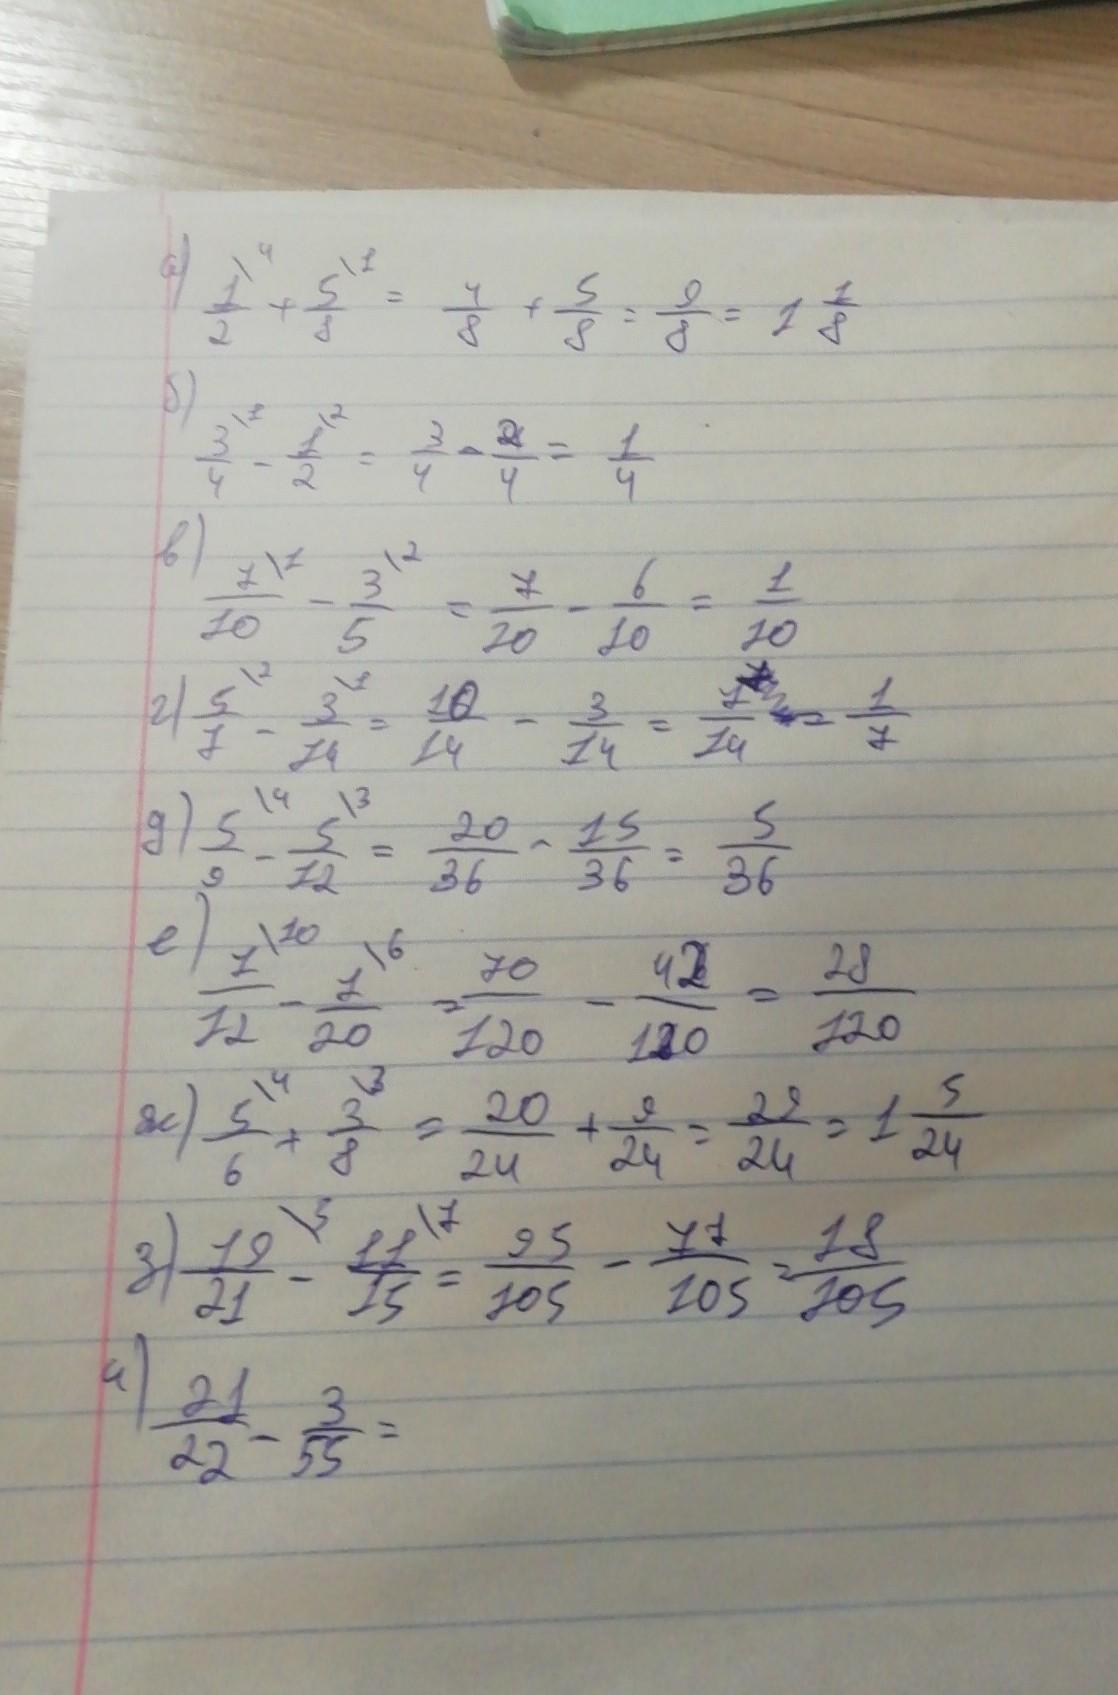 а) 1/2 \4 + 5/8 \1 = 4/8 + 5/8 = 9/8 = 1 1/8
б)
3/4 \1 - 1/2 \2 = 3/4 - 2/4 = 1/4
в)
7/10 \1 - 3/5 \2 = 7/10 - 6/10 = 1/10
г) 5/7 \2 - 3/14 \1 = 10/14 - 3/14 = 7/14 = 1/7
д) 5/9 \4 - 5/12 \3 = 20/36 - 15/36 = 5/36
е)
7/12 \10 - 7/20 \6 = 70/120 - 42/120 = 28/120
ж) 5/6 \4 + 3/8 \3 = 20/24 + 9/24 = 29/24 = 1 5/24
з) 19/21 \5 - 11/15 \7 = 95/105 - 77/105 = 18/105
и) 21/22 - 3/55 =